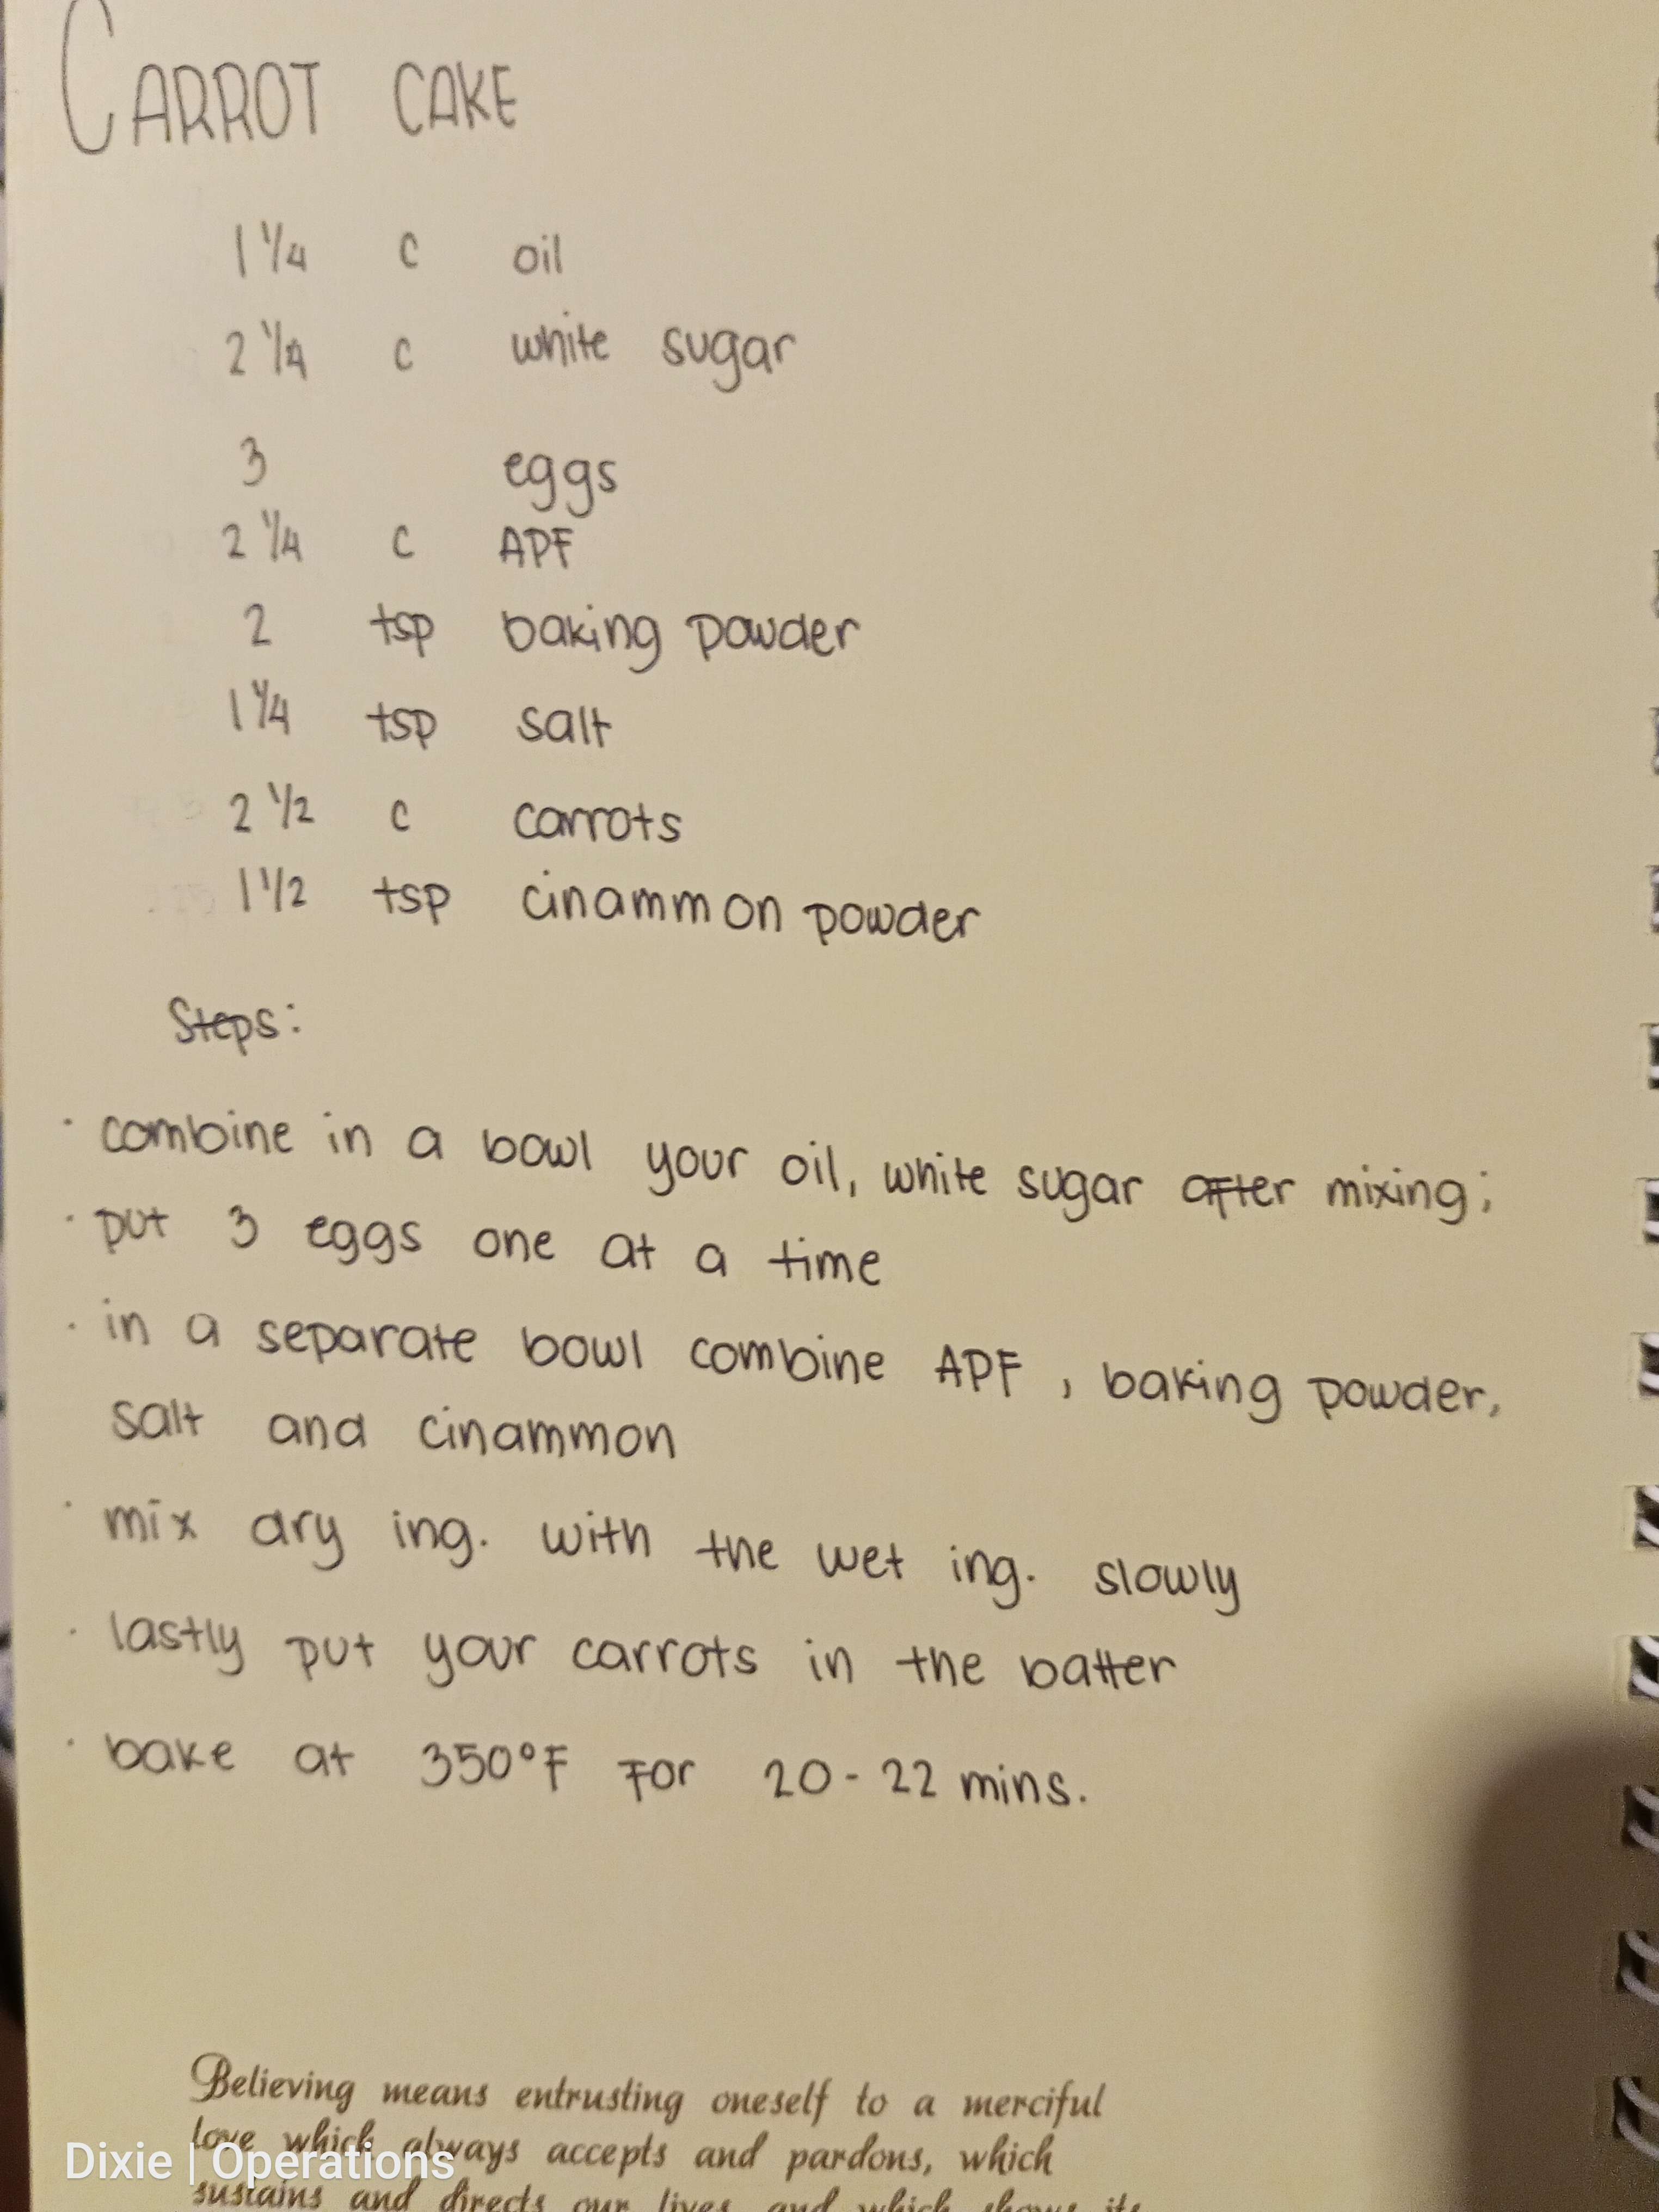 CARROT CAKE
1 1/4 c oil
2 1/4 c white sugar
3 eggs
2 1/4 c APF
2 tsp baking powder
1 1/4 tsp salt
2 1/2 c carrots
1 1/2 tsp cinammon powder
Steps:
· combine in a bowl your oil, white sugar after mixing;
· put 3 eggs one at a time
· in a separate bowl combine APF, baking powder,
salt and cinammon
· mix dry ing. with the wet ing. slowly
· lastly put your carrots in the batter
· bake at 350°F for 20-22 mins.
Believing means entrusting oneself to a merciful
love which always accepts and pardons, which
sustains and directs our lives, and which shows its
Dixie | Operations